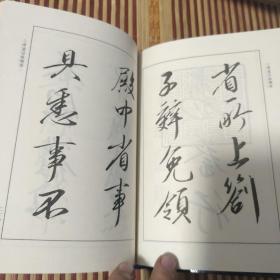 省所上劄
子辤免領
殿中省事
具悉事不